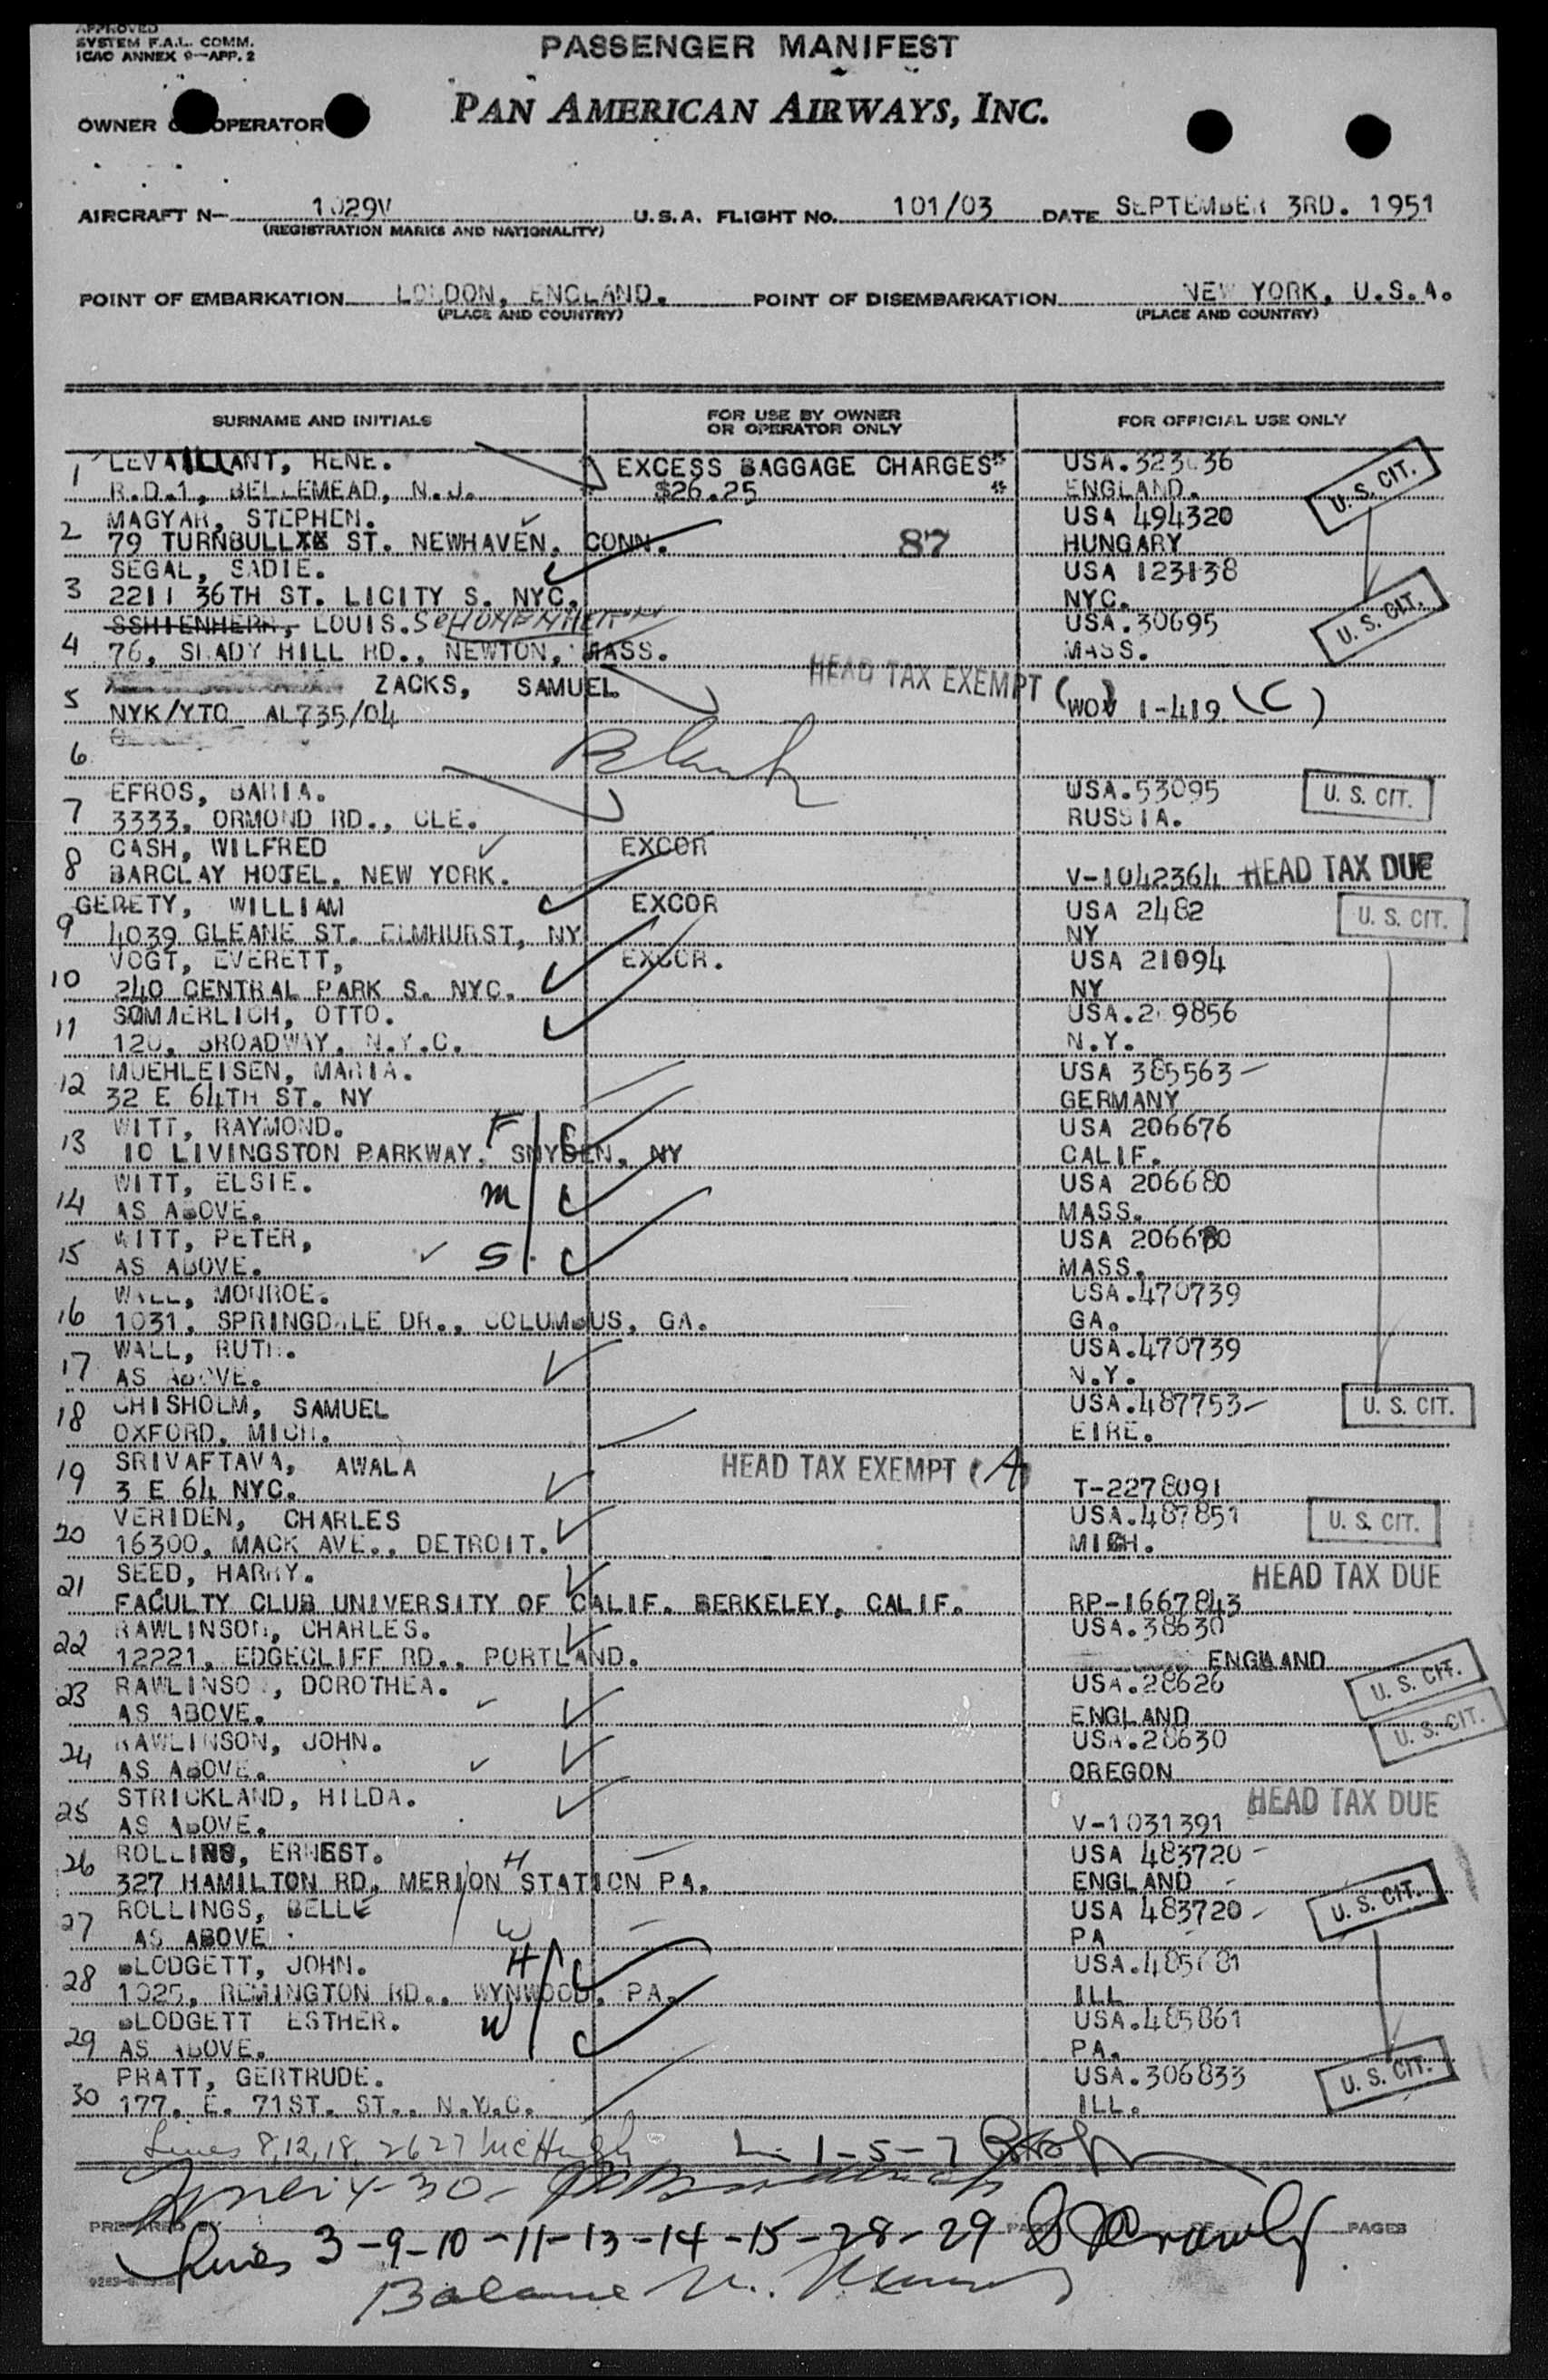 APPROVED
SYSTEM F.A.L. COMM.
ICAO ANNEX 9—APP. 2
PASSENGER MANIFEST
OWNER OPERATOR
PAN AMERICAN AIRWAYS, INC.
AIRCRAFT N— 1029V U.S.A. FLIGHT NO. 101/03 DATE SEPTEMBER 3RD. 1951
(REGISTRATION MARKS AND NATIONALITY)
POINT OF EMBARKATION LONDON, ENGLAND. POINT OF DISEMBARKATION NEW YORK, U.S.A.
(PLACE AND COUNTRY) (PLACE AND COUNTRY)
SURNAME AND INITIALS FOR USE BY OWNER OR OPERATOR ONLY FOR OFFICIAL USE ONLY
1 LEVAILLANT, RENE. EXCESS BAGGAGE CHARGES* USA. U. S. CIT.
R.D.1, BELLEMEAD, N.J. $26.25 * ENGLAND.
2 MAGYAR, STEPHEN. USA 494320
79 TURNBULLXX ST. NEWHAVEN, CONN. 87 HUNGARY
3 SEGAL, SADIE. USA 123138
2211 36TH ST. LICITY S. NYC. NYC.
4 SSHIENHERR, LOUIS. SCHOHENHERR USA.30695 U. S. CIT.
76, SHADY HILL RD., NEWTON, MASS. MASS.
5 ZACKS, SAMUEL HEAD TAX EXEMPT (WOV 1-419 (C)
NYK/YTO AL735/04
6 Blank
7 EFROS, BARIA. USA.53095 U. S. CIT.
3333, ORMOND RD., CLE. RUSSIA.
8 CASH, WILFRED EXCOR
BARCLAY HOTEL, NEW YORK. V-1042364 HEAD TAX DUE
9 GERETY, WILLIAM EXCOR USA 2482 U. S. CIT.
4039 GLEANE ST. ELMHURST, NY NY
10 VOGT, EVERETT, EXCOR. USA 21094
240 CENTRAL PARK S. NYC. NY
11 SOMMERLICH, OTTO. USA.2 9856
120, BROADWAY, N.Y.C. N.Y.
12 MUEHLEISEN, MARIA. USA 385563
32 E 64TH ST. NY GERMANY
13 WITT, RAYMOND. F USA 206676
10 LIVINGSTON PARKWAY, SNYDEN, NY CALIF.
14 WITT, ELSIE. M USA 206680
AS ABOVE. MASS.
15 WITT, PETER, S USA 206680
AS ABOVE. MASS.
16 WALL, MONROE. USA.470739
1031, SPRINGDALE DR., COLUMBUS, GA. GA.
17 WALL, RUTH. USA.470739
AS ABOVE. N.Y.
18 CHISHOLM, SAMUEL USA.487753 U. S. CIT.
OXFORD, MICH. EIRE.
19 SRIVAFTAVA, AWALA HEAD TAX EXEMPT (A)
3 E 64 NYC. T-2278091
20 VERIDEN, CHARLES USA.487851 U. S. CIT.
16300, MACK AVE., DETROIT. MICH.
21 SEED, HARRY. HEAD TAX DUE
FACULTY CLUB UNIVERSITY OF CALIF. BERKELEY, CALIF. RP-1667843
22 RAWLINSON, CHARLES. USA.38630
12221, EDGECLIFF RD., PORTLAND. ENGLAND
23 RAWLINSON, DOROTHEA. USA.28626 U. S. CIT.
AS ABOVE. ENGLAND
24 RAWLINSON, JOHN. USA.28630 U. S. CIT.
AS ABOVE. OREGON
25 STRICKLAND, HILDA. HEAD TAX DUE
AS ABOVE. V-1031391
26 ROLLINS, ERNEST. H USA 483720
327 HAMILTON RD. MERION STATION PA. ENGLAND
27 ROLLINGS, BELLE USA 483720 U. S. CIT.
AS ABOVE W PA
28 BLODGETT, JOHN. H USA.
1025, REMINGTON RD., WYNWOOD, PA. ILL
29 BLODGETT ESTHER. W USA.485861
AS ABOVE. PA.
30 PRATT, GERTRUDE. USA.306833 U. S. CIT.
177, E. 71ST. ST., N.Y.C. ILL.
Lines 8, 12, 18, 26 27 McHugh L. 1-5-7
Lines 4-30-
PREPARED BY PAGE OF PAGES
Lines 3-9-10-11-13-14-15-28-29
Balance